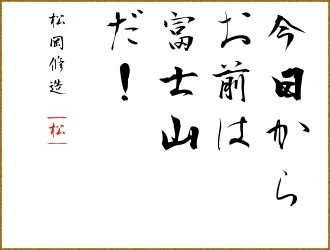 今日から
お前は
富士山
だ！
松岡修造
松